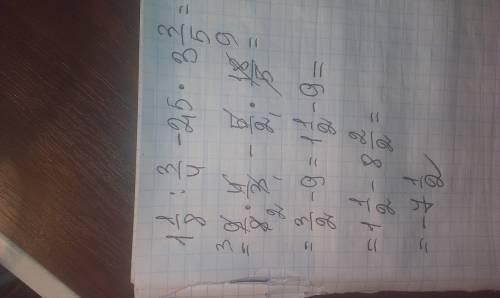 1 1/8 : 3/4 - 2,5 · 3 3/5 =
= 9/8 · 4/3 - 5/2 · 18/5 =
= 3/2 - 9 = 1 1/2 - 9 =
= 1 1/2 - 8 2/2 =
= -7 1/2